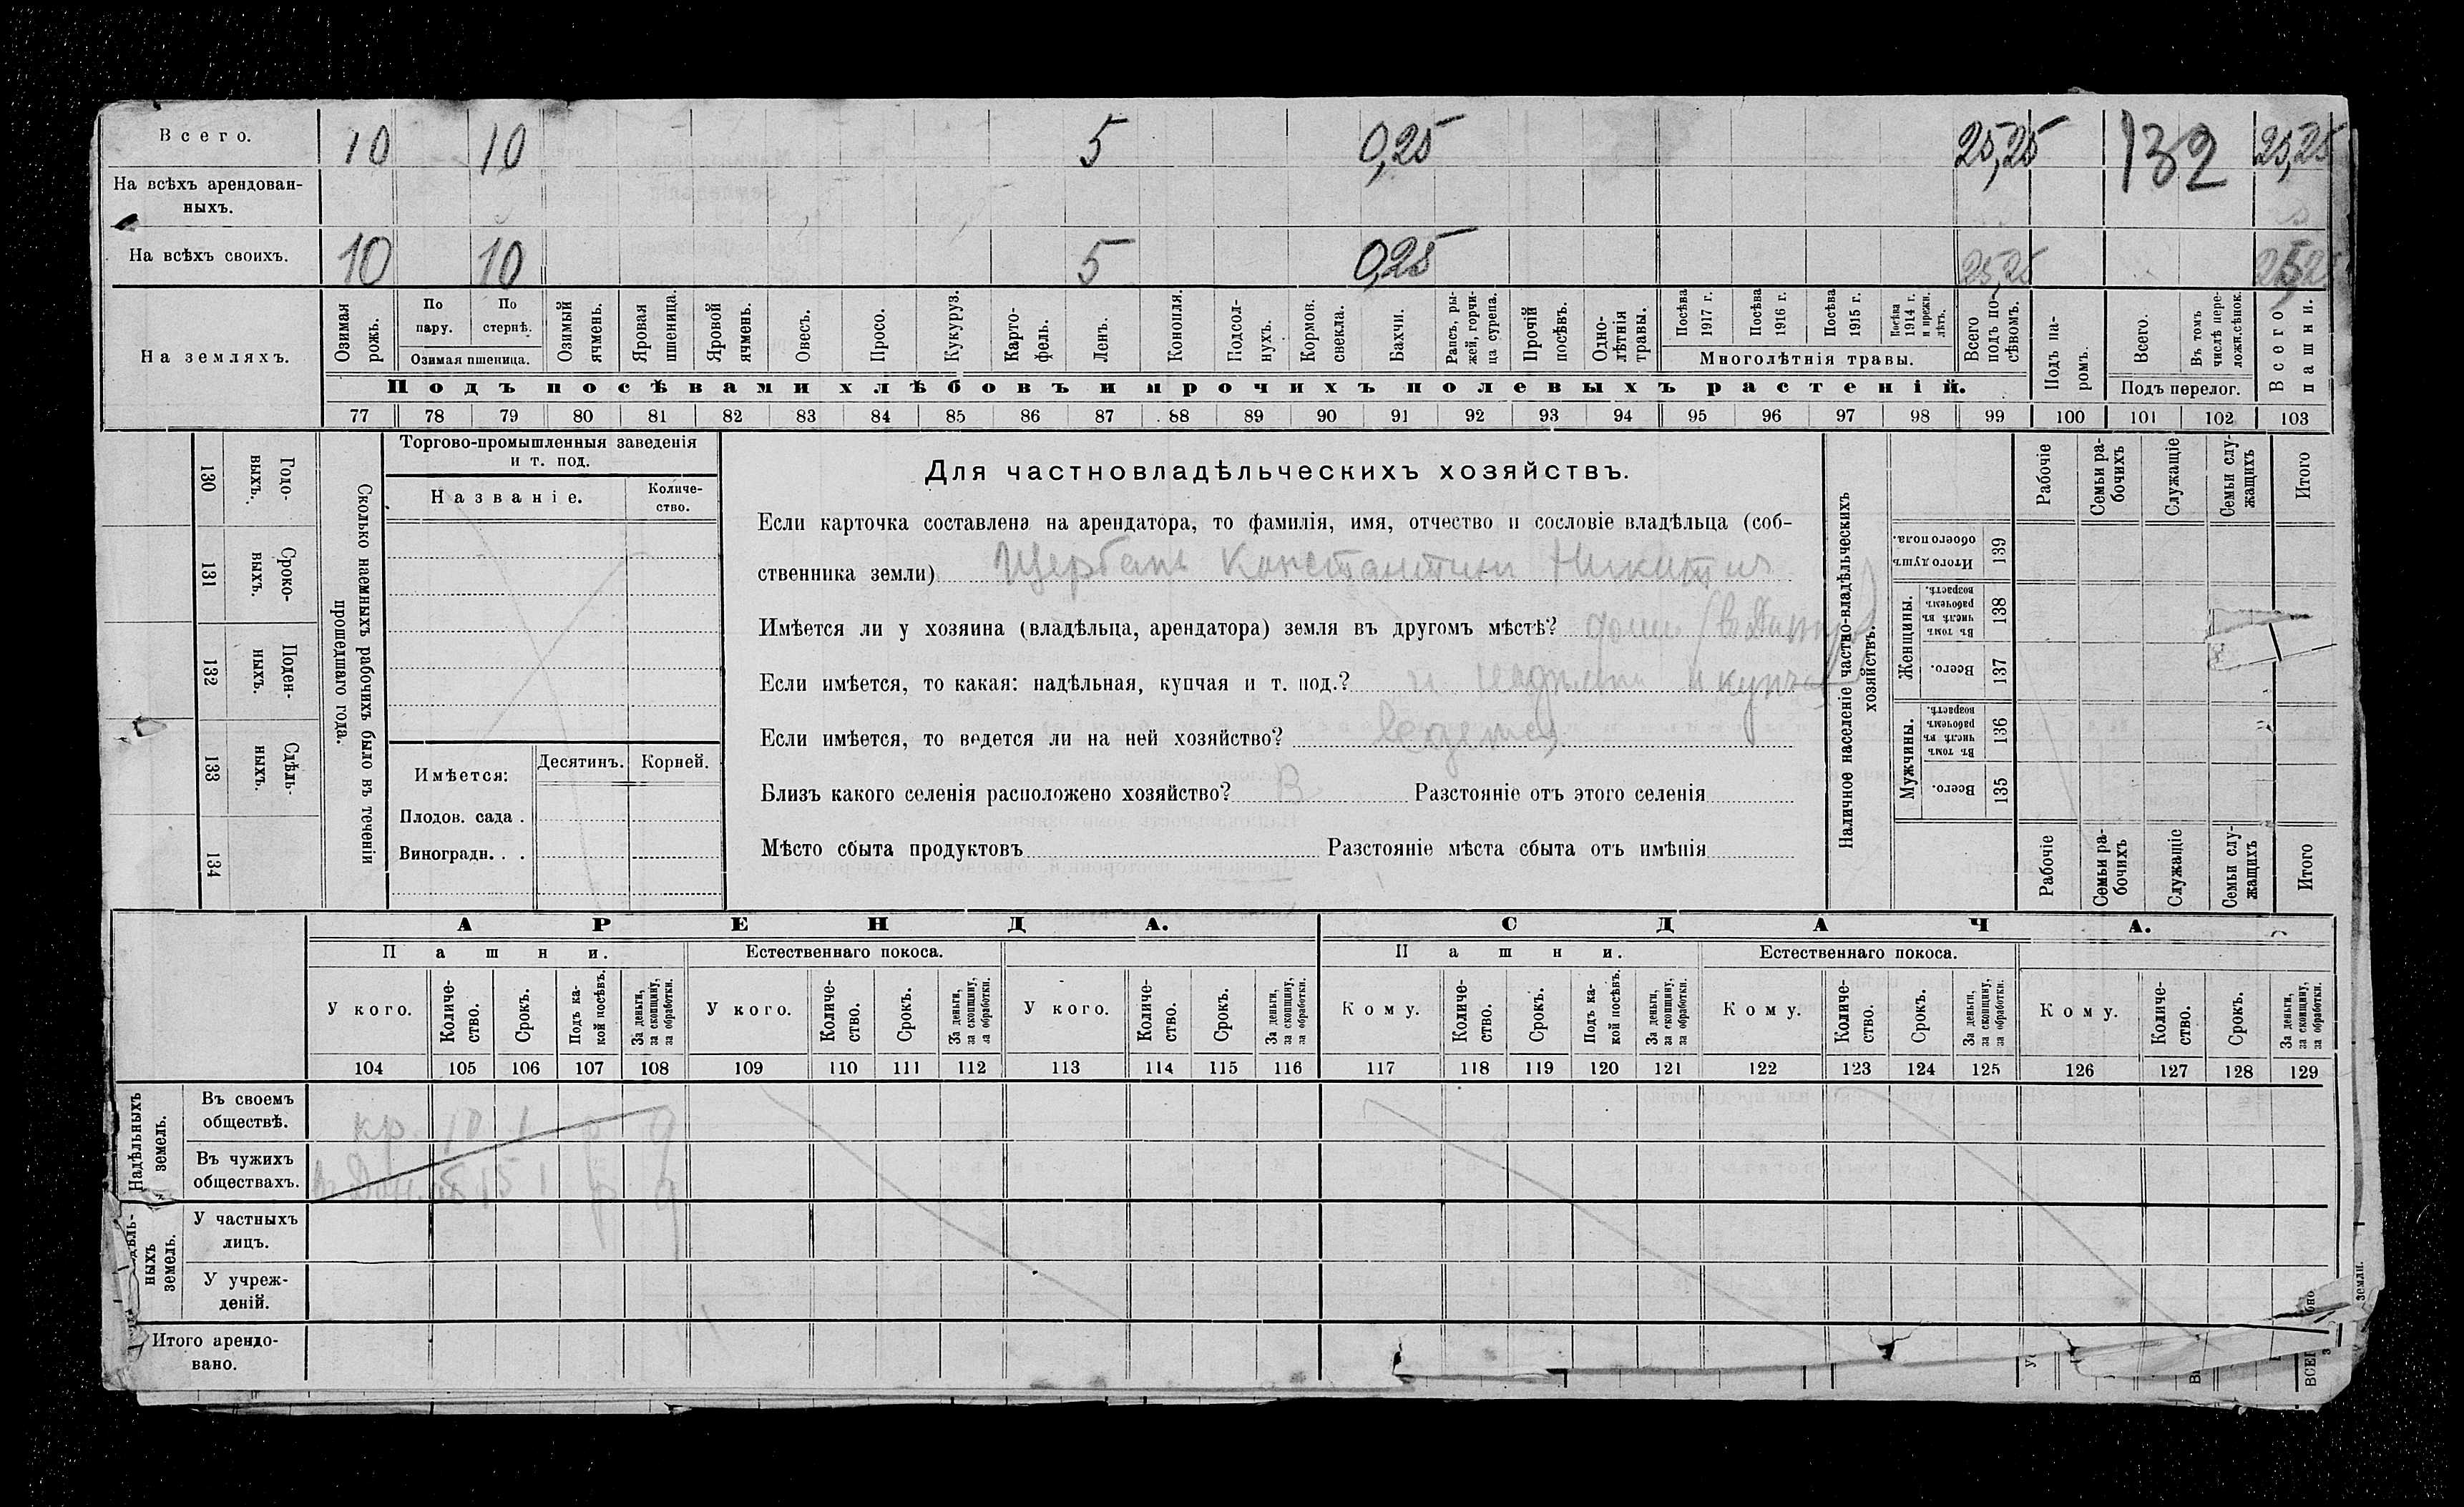 Всего. 10 10 5 0,25 25,25 132 25,25
На всѣхъ арендован-
ныхъ.
На всѣхъ своихъ. 10 10 5 0,25 25,25
На земляхъ.
Озимая рожь.
По пару.
По стернѣ.
Озимая пшеница.
Озимый ячмень.
Яровая пшеница.
Яровой ячмень.
Овесъ.
Просо.
Кукуруз.
Карто-
фель.
Ленъ.
Конопля.
Подсол-
нухъ.
Кормов. свекла.
Бахчи.
Рапсъ, ры-
жей, горчи-
ца сурепа.
Прочій посѣвъ.
Одно-
лѣтнія травы.
Посѣва 1917 г.
Посѣва 1916 г.
Посѣва 1915 г.
Посѣва 1914 г. и прежн. лѣтъ.
Многолѣтнія травы.
Всего подъ по-
сѣвомъ.
Подъ па-
ромъ.
Всего.
Въ томъ числѣ пере-
ложн.сѣнок.
Подъ перелог.
Всего пашни.
Подъ посѣвами хлѣбовъ и прочихъ полевыхъ растеній.
77 78 79 80 81 82 83 84 85 86 87 88 89 90 91 92 93 94 95 96 97 98 99 100 101 102 103
130 Годо-
выхъ.
131 Сроко-
выхъ.
132 Поден-
ныхъ.
133 Сдѣль-
ныхъ.
134
Сколько наемныхъ рабочихъ было въ теченіи
прошедшаго года.
Торгово-промышленныя заведенія
и т. под.
Названіе.
Количе-
ство.
Имѣется: Десятинъ. Корней.
Плодов. сада .
Виноградн. . .
Для частновладѣльческихъ хозяйствъ.
Если карточка составлена на арендатора, то фамилія, имя, отчество и сословіе владѣльца (соб-
ственника земли) Щербань Константин Никитич
Имѣется ли у хозяина (владѣльца, арендатора) земля въ другомъ мѣстѣ?
Если имѣется, то какая: надѣльная, купчая и т. под.? и купчая
Если имѣется, то ведется ли на ней хозяйство? ведется
Близъ какого селенія расположено хозяйство? В Разстояніе отъ этого селенія
Мѣсто сбыта продуктовъ Разстояніе мѣста сбыта отъ имѣнія
Наличное населеніе частно-владѣльческихъ
хозяйствъ.
Рабочіе
Семьи ра-
бочихъ
Служащіе
Семьи слу-
жащихъ
Итого
Итого душъ обоего пола. 139
Женщины.
Въ томъ числѣ въ рабочемъ возрастѣ. 138
Всего. 137
Мужчины.
Въ томъ числѣ въ рабочемъ возрастѣ. 136
Всего. 135
Рабочіе
Семьи ра-
бочихъ
Служащіе
Семьи слу-
жащихъ
Итого
АРЕНДА. СДАЧА.
Пашни. Естественнаго покоса. Пашни. Естественнаго покоса.
У кого.
Количе-
ство.
Срокъ.
Подъ ка-
кой посѣвъ.
За деньги, за скопщину, за обработки.
У кого.
Количе-
ство.
Срокъ.
За деньги, за скопщину, за обработки.
У кого.
Количе-
ство.
Срокъ.
За деньги, за скопщину, за обработки.
Кому.
Количе-
ство.
Срокъ.
Подъ ка-
кой посѣвъ.
За деньги, за скопщину, за обработки.
Кому.
Количе-
ство.
Срокъ.
За деньги, за скопщину, за обработки.
Кому.
Количе-
ство.
Срокъ.
За деньги, за скопщину, за обработки.
104 105 106 107 108 109 110 111 112 113 114 115 116 117 118 119 120 121 122 123 124 125 126 127 128 129
Надѣльныхъ земель.
Въ своемъ
обществѣ. кр. 10 1
Въ чужихъ
обществахъ. 15 1
ныхъ земель.
У частныхъ
лицъ.
У учреж-
деній.
Итого арендо-
вано.
земли.